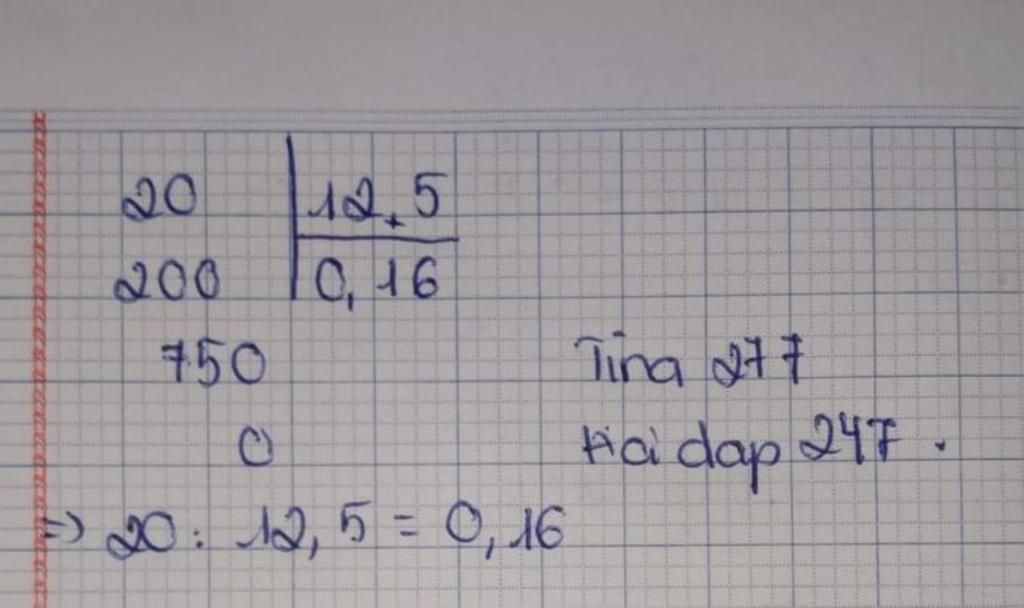 20 12,5
200 0,16
750
0
Tina 277
Hoidap 247.
=> 20 : 12,5 = 0,16